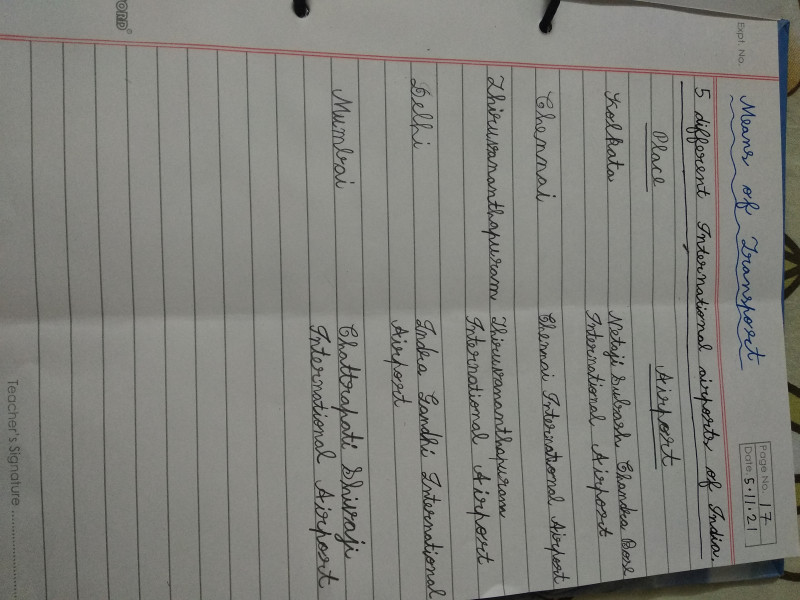 Expt. No.
Page No. 17
Date. 5.11.21
Means of Transport
5 different International airports of India.
Place Airport
Kolkata Netaji Subash Chandra Bose
International Airport
Chennai Chennai International Airport
Thiruvananthapuram Thiruvananthapuram
International Airport
Delhi Indra Gandhi International
Airport
Mumbai Chattrapati Shivaji
International Airport
Teacher's Signature